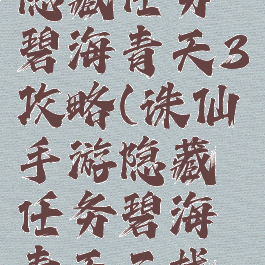 隐藏任务
碧海青天3
攻略(诛仙
手游隐藏
任务碧海
青天三战